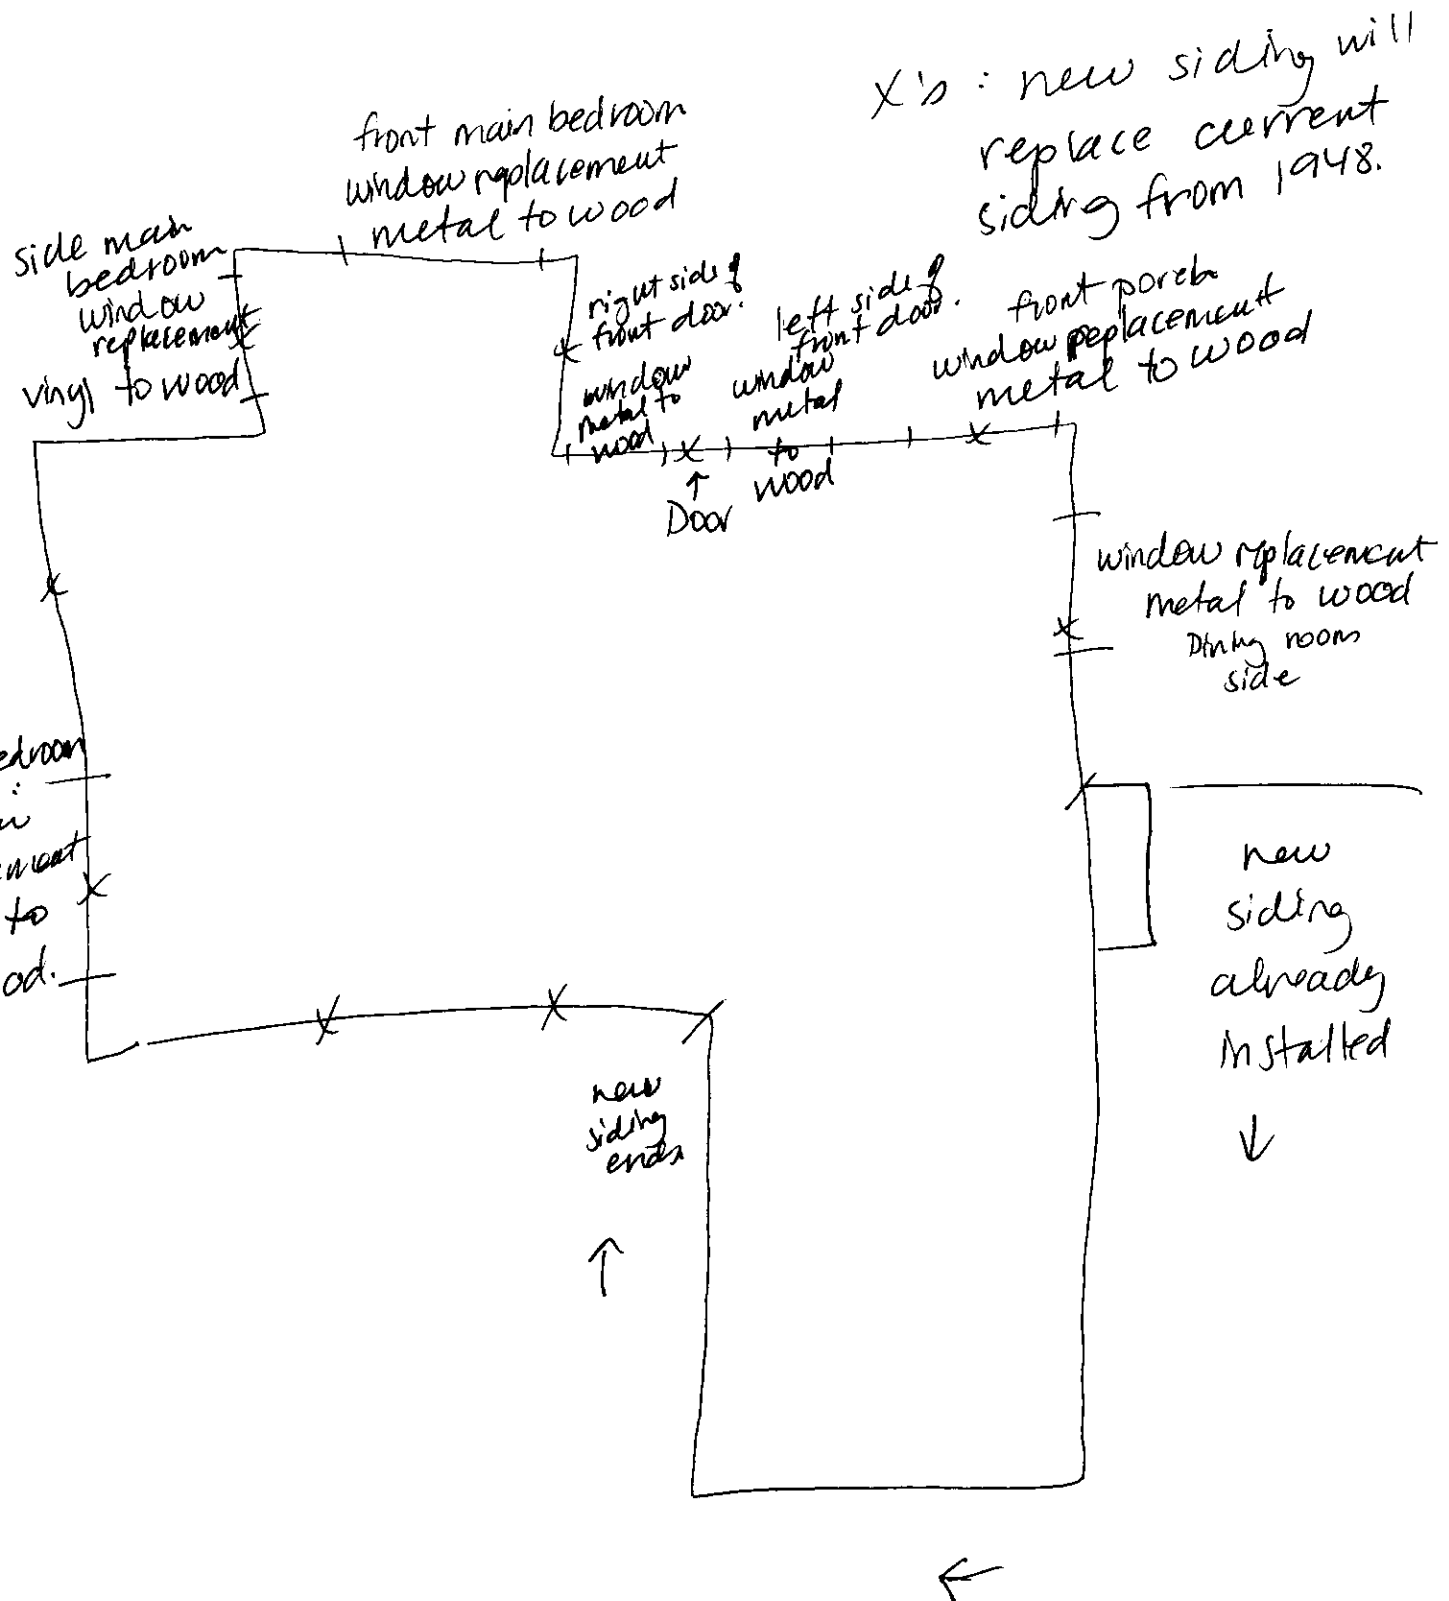 X's : new siding will
replace current
siding from 1948.
front main bedroom
window replacement
metal to wood
side main
bedroom
window
replacement
vinyl to wood
right side of
front door.
window
metal to
wood
left side of
front door.
window
metal
to
wood
front porch
window replacement
metal to wood
X
↑
Door
window replacement
metal to wood
Dining room
side
new
siding
already
installed
↓
to
new
siding
ends
↑
←